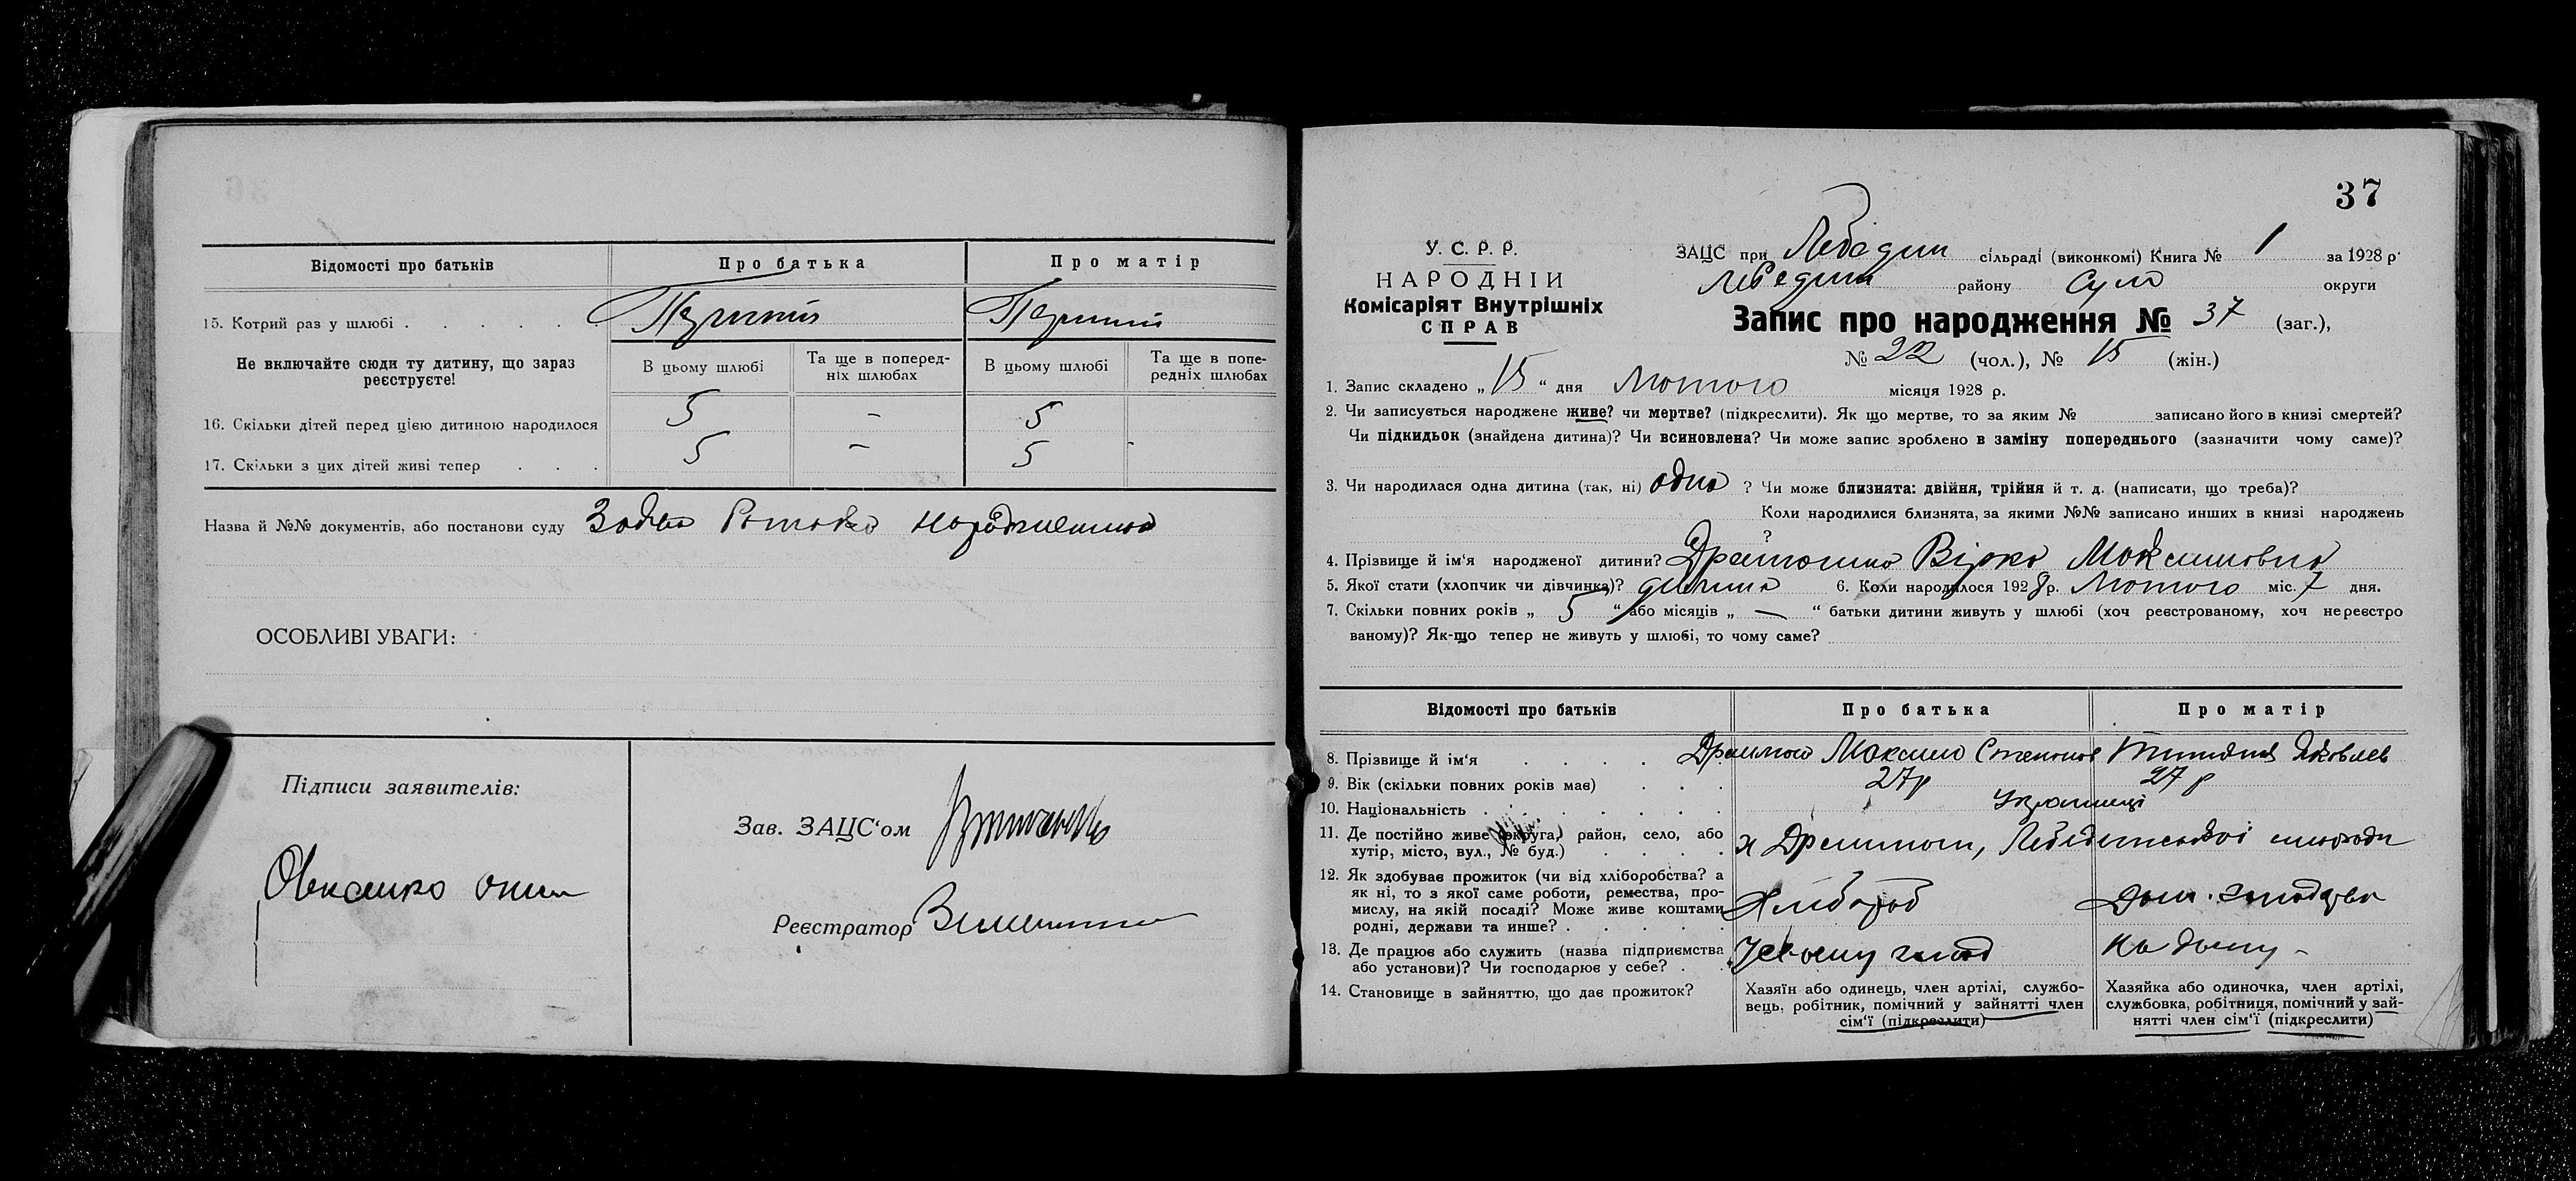 Відомості про батьків
Про батька
Про матір
15. Котрий раз у шлюбі . . . . .
Перший
Перший
Не включайте сюди ту дитину, що зараз реєструєте!
В цьому шлюбі
Та ще в поперед-
ніх шлюбах
В цьому шлюбі
Та ще в попе-
редніх шлюбах
16. Скільки дітей перед цією дитиною народилося
5
–
5
17. Скільки з цих дітей живі тепер . . .
5
–
5
-
Назва й №№ документів, або постанови суду
ОСОБЛИВІ УВАГИ:
Підписи заявителів:
Зав. ЗАЦС'ом
Реєстратор
37
У. С. Р. Р.
НАРОДНІИ
Комісаріят Внутрішніх
СПРАВ
ЗАЦС при Лебедин сільраді (виконкомі) Книга № 1 за 1928 р.
Лебедин району Сум округи
Запис про народження № 37 (заг.),
№ 22 (чол.), № 15 (жін.)
1. Запис складено „ 15 “ дня Лютого місяця 1928 р.
2. Чи записується народжене живе? чи мертве? (підкреслити). Як що мертве, то за яким № записано його в книзі смертей?
Чи підкидьок (знайдена дитина)? Чи всиновлена? Чи може запис зроблено в заміну попереднього (зазначити чому саме)?
3. Чи народилася одна дитина (так, ні) одна ? Чи може близнята: двійня, трійня й т. д. (написати, що треба)?
Коли народилися близнята, за якими №№ записано инших в книзі народжень
?
4. Прізвище й ім'я народженої дитини? Віра Максимовна
5. Якої стати (хлопчик чи дівчинка)? 6. Коли народилося 1928 р. Лютого міс. 7 дня.
7. Скільки повних років „ 5 “ або місяців „ — “ батьки дитини живуть у шлюбі (хоч реєстрованому, хоч нереєстро
ваному)? Як-що тепер не живуть у шлюбі, то чому саме?
Відомості про батьків
Про батька
Про матір
8. Прізвище й ім'я . . . .
Максим Степанов
Яковлев
9. Вік (скільки повних років має) . . .
27 р
27 р
10. Національність . . . . . . .
Українці
11. Де постійно живе (округа, район, село, або
хутір, місто, вул., № буд.) . . . .
12. Як здобуває прожиток (чи від хліборобства? а
як ні, то з якої саме роботи, ремества, про-
мислу, на якій посаді? Може живе коштами
родні, держави та инше? . . . . .
Хлібороб
Дом.
13. Де працює або служить (назва підприємства
або установи)? Чи господарює у себе? . .
на дому -
14. Становище в зайняттю, що дає прожиток?
Хазяїн або одинець, член артілі, службо-
вець, робітник, помічний у зайнятті член
сім'ї (підкреслити)
Хазяйка або одиночка, член артілі,
службовка, робітниця, помічний у зай-
нятті член сім'ї (підкреслити)